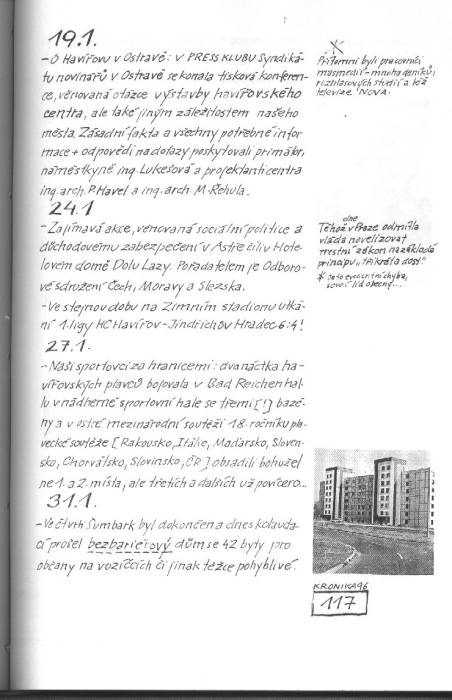 19.1.
- O Havířovu v Ostravě: v PRESS KLUBU Syndiká-
tu novinářů v Ostravě se konala tisková konferen-
ce, věnovaná otázce výstavby havířovského
centra, ale také jiným záležitostem našeho
města. Zásadní fakta a všechny potřebné infor
mace + odpovědi na dotazy poskytovali primátor,
náměstkyně ing. Lukešová a projektanti centra
ing. arch. P. Havel a ing. arch. M. Řehula.
24.1
- Zajímavá akce, věnovaná sociální politice a
důchodovému zabezpečení v Astře čili v Hote-
lovém domě Dolu Lazy. Pořadatelem je Odboro-
vé sdružení Čech, Moravy a Slezska.
- Ve stejnou dobu na Zimním stadionu utká-
ní 1. ligy HC Havířov - Jindřichův Hradec 6:4!
27.1.
- Naši sportovci za hranicemi: dvanáctka ha-
vířovských plavců bojovala v Bad Reichenhal-
lu v nádherné sportovní hale se třemi [!] bazé-
ny a v ostré mezinárodní soutěži 18. ročníku pla-
vecké soutěže [Rakousko, Itálie, Maďarsko, Sloven-
sko, Chorvatsko, Slovinsko, ČR] obsadili bohužel
ne 1. a 2. místa, ale třetích a dalších už povícero...
31.1.
- Ve čtvrti Šumbark byl dokončen a dnes kolauda
cí prošel bezbariérový dům se 42 byty pro
občany na vozíčcích či jinak těžce pohyblivé.
Přítomni byli pracovníci
masmedií - mnoha deníků,
rozhlasových studií a též
televize NOVA.
dne
Téhož v Praze odmítla
vláda novelizovat
trestní zákon na základě
principu „třikrát a dost."
* Je to evidentní chyba,
soudí lid obecný...
KRONIKA 96
117